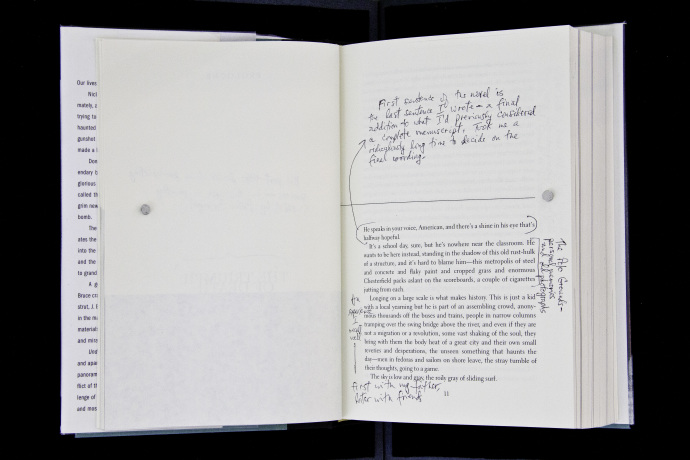 Our lives
Nicl
mately, a
trying to
haunted
gunshot
made a l
Don
endary b
glorious
called th
grim new
bomb.
The
ates the
into the
and the
to grand
A g
Bruce cra
strut, J. E
in the ma
materials
and mira
Und
and apa
panoram
flict of th
lenge of
and mos
First sentence of the novel is
the last sentence I wrote – a final
addition to what I'd previously considered
a complete manuscript. Took me a
ridiculously long time to decide on the
final wording.
He speaks in your voice, American, and there's a shine in his eye that's
halfway hopeful.
It's a school day, sure, but he's nowhere near the classroom. He
wants to be here instead, standing in the shadow of this old rust-hulk
of a structure, and it's hard to blame him—this metropolis of steel
and concrete and flaky paint and cropped grass and enormous
Chesterfield packs aslant on the scoreboards, a couple of cigarettes
jutting from each.
Longing on a large scale is what makes history. This is just a kid
with a local yearning but he is part of an assembling crowd, anony-
mous thousands off the buses and trains, people in narrow columns
tramping over the swing bridge above the river, and even if they are
not a migration or a revolution, some vast shaking of the soul, they
bring with them the body heat of a great city and their own small
reveries and desperations, the unseen something that haunts the
day—men in fedoras and sailors on shore leave, the stray tumble of
their thoughts, going to a game.
The sky is low and gray, the roily gray of sliding surf.
11
The Polo Grounds –
personal memories
and old photographs
An
experience
I
recall
well
First with my father,
later with friends